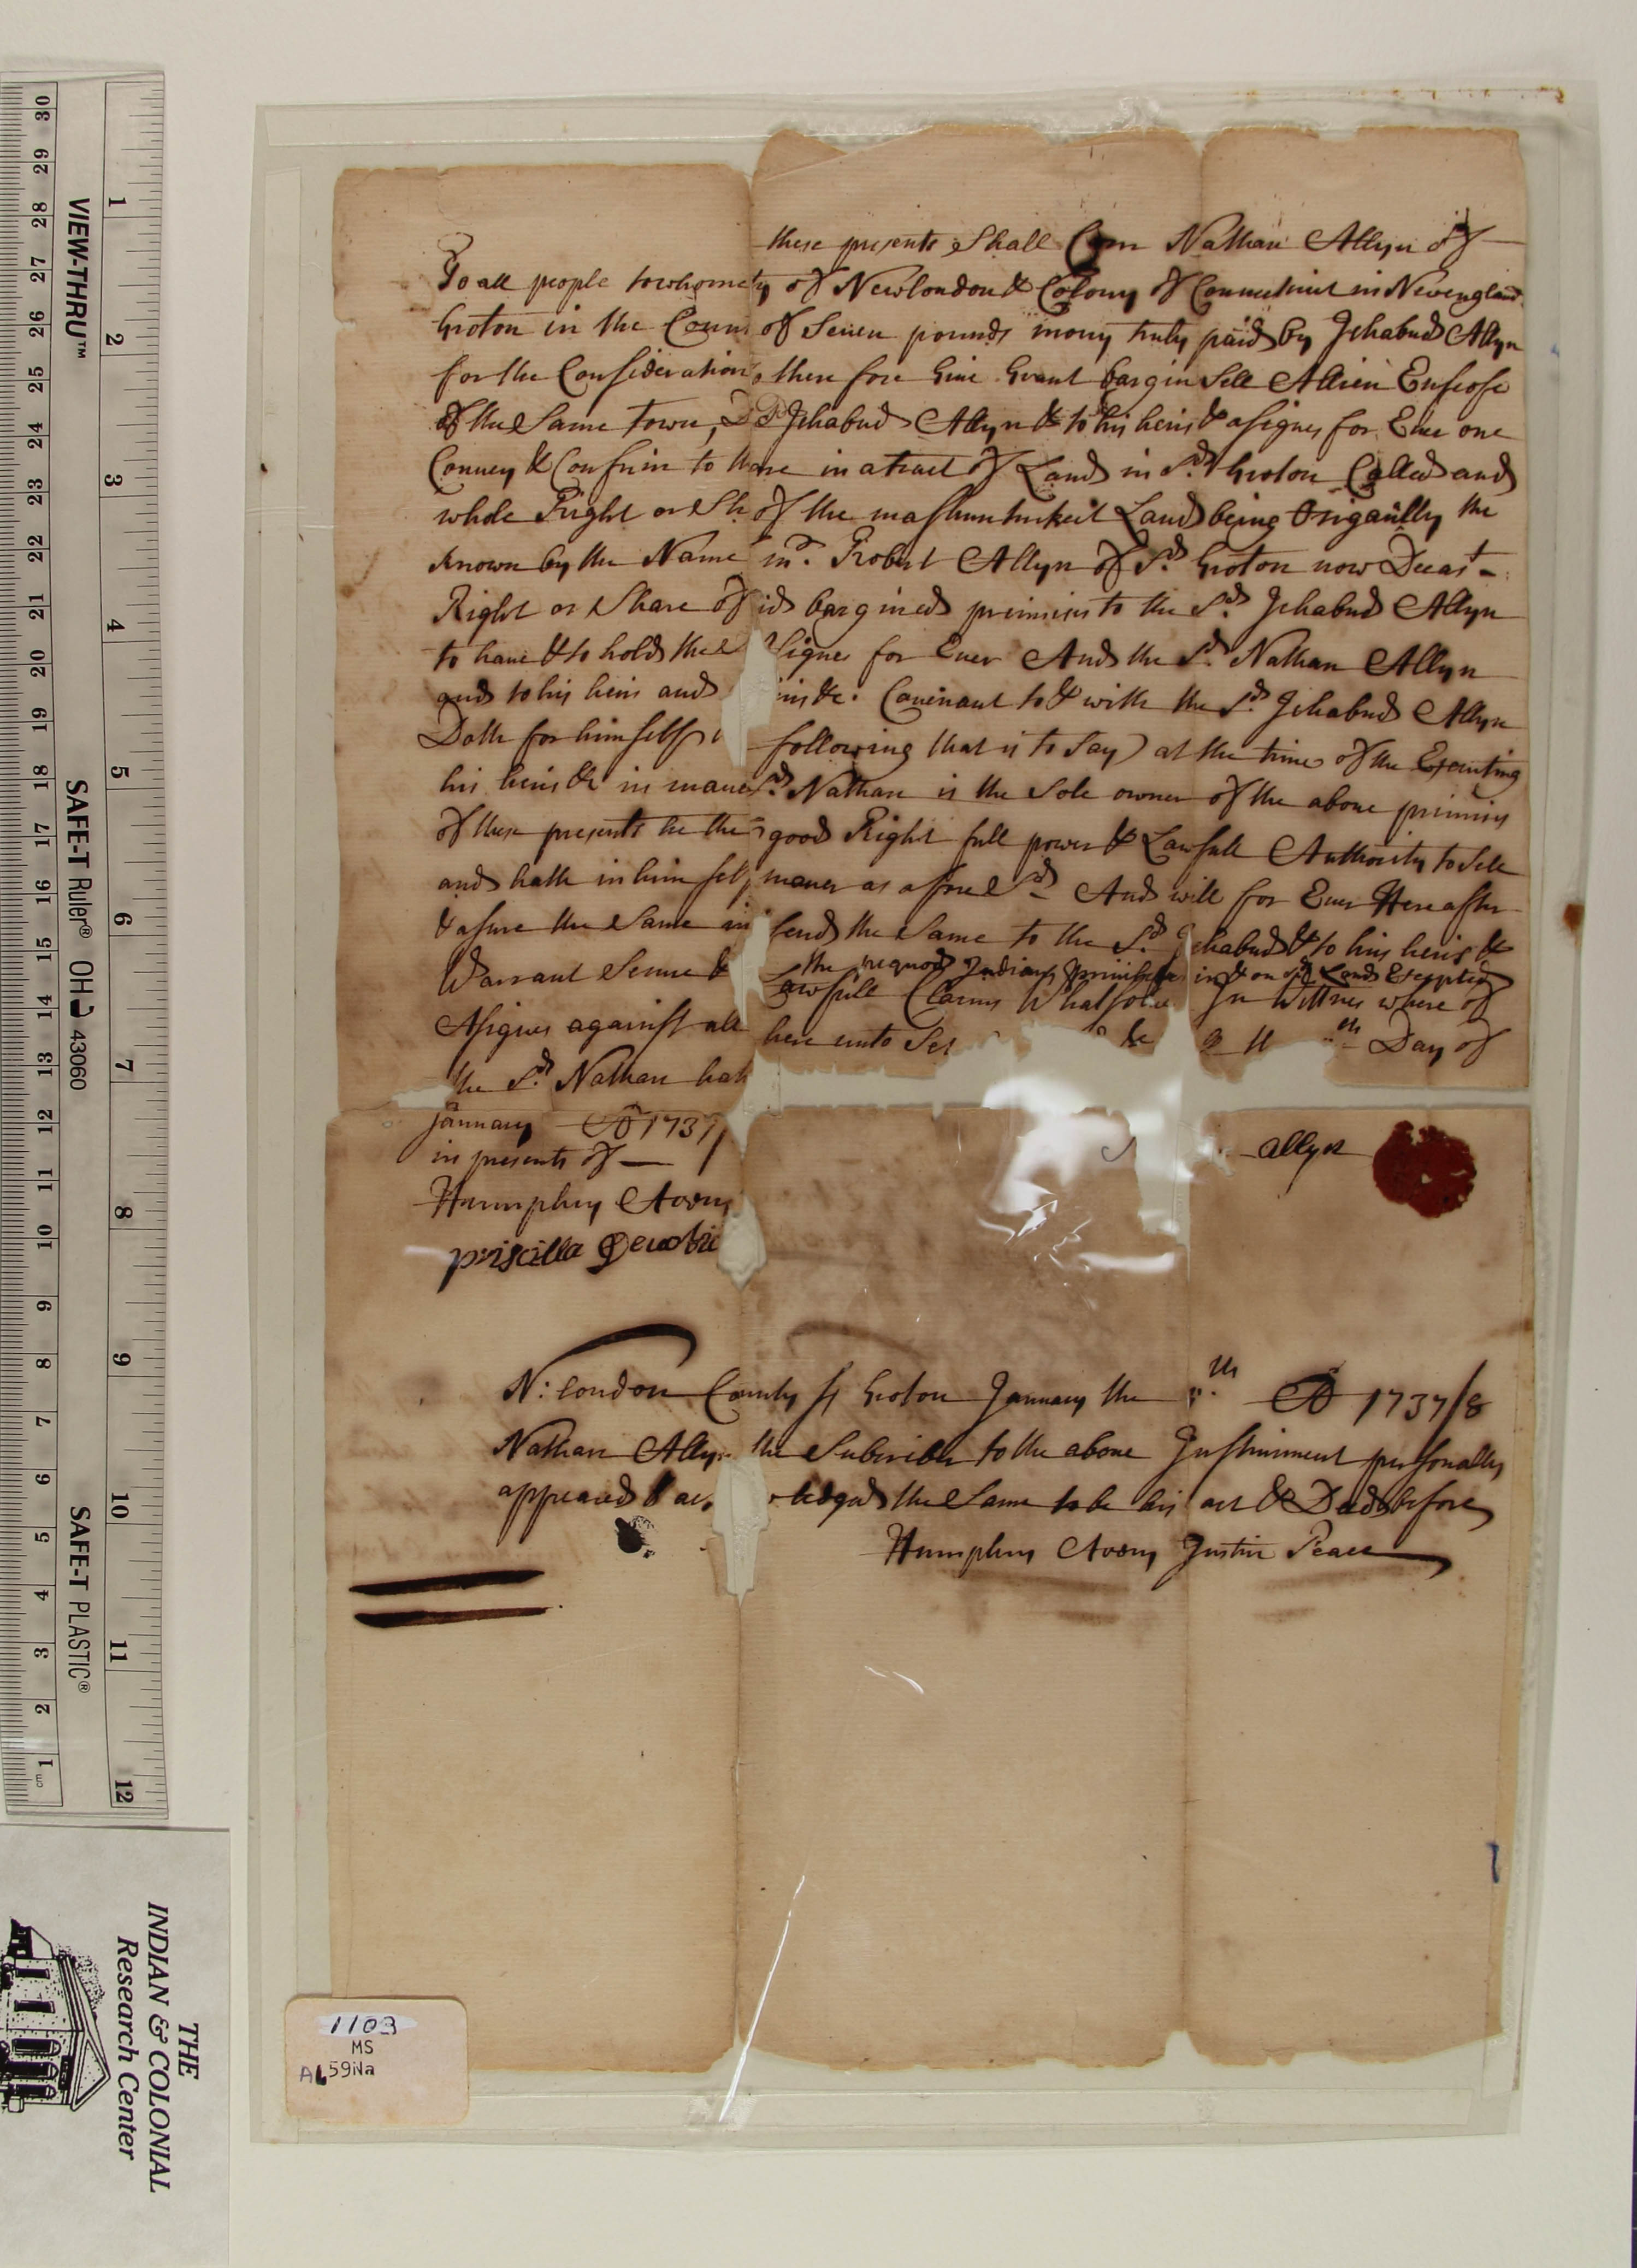 To all people to whome these presents Shall Com Nathan Allyn of
Groton in the County of Newlondon & Colony of Connecticut in Newengland
for the Consideration of Seven pounds mony truly paid by Jehabud Allyn
of the Same town, Do there fore Give Grant bargin Sell Allien Enfeofe
Convey & Confirm to the Sd Jehabud Allyn & to his heirs & asignes for Ever one
whole Right or Share in a tract of Land in Sd Groton Called and
known by the Name of the mashuntuket Land being Origanilly the
Right or Share of mr. Robert Allyn of Sd Groton now Deceast
to have & to hold the Said bargined premises to the Sd Jehabud Allyn
and to his heirs and asignes for Ever And the Sd Nathan Allyn
Doth for himself heirs &c. Covenant to & with the Sd Jehabud Allyn
his heirs &c in maner following that is to say) at the time of the Executing
of these presents he the Sd Nathan is the Sole owner of the above premises
and hath in him self good Right full power & Lawfull Authority to Sell
& asure the Same in maner as afore Sd And will for Ever Hereafter
Warrant Secure & Defend the Same to the Sd Jehabud & to his heirs &
the pequod Indians in & on sd Land Excepted
Asignes against all Lawfull Claims Whatsoever In Wittnes where of
the Sd Nathan hath here unto Set th Day of
January AD 1737/
in presents of
Humphry Avery
priscilla
allyn
N: London County ss Groton January the th AD 1737/8
Nathan Allyn the Subcriber to the above Instrument personally
appeared & acknowledged the Same to be his act & Deed before
Humphry Avery Justice Peace
1103
MS
AL59Na
VIEW-THRU™ SAFE-T Ruler® OH 43060 SAFE-T PLASTIC®
1 2 3 4 5 6 7 8 9 10 11 12
30 29 28 27 26 25 24 23 22 21 20 19 18 17 16 15 14 13 12 11 10 9 8 7 6 5 4 3 2 1
THE
INDIAN & COLONIAL
Research Center